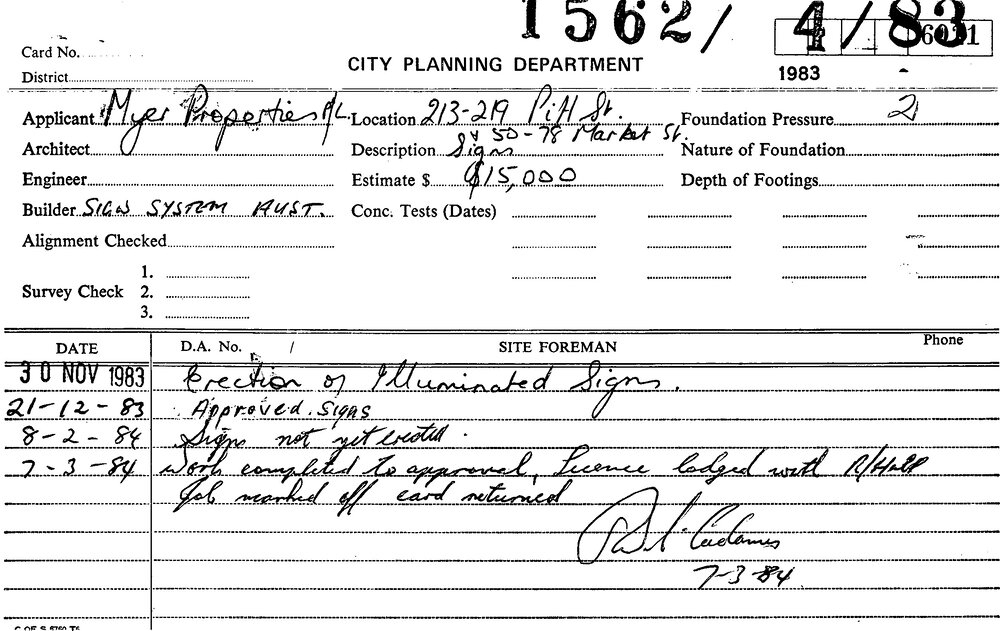 1562/ 4/83
Card No.
CITY PLANNING DEPARTMENT
1983
District
Applicant Myer Properties P/L. Location 213-219 Pitt St. Foundation Pressure 2
& 50-78 Market St.
Architect Description Signs Nature of Foundation
Engineer Estimate $ $15,000 Depth of Footings
Builder SIGN SYSTEM AUST. Conc. Tests (Dates)
Alignment Checked
1.
Survey Check 2.
3.
DATE D.A. No. / SITE FOREMAN Phone
30 NOV 1983 Erection of Illuminated Signs.
21-12-83 Approved. Signs
8-2-84 Signs not yet erected.
7-3-84 Work completed to approval, Licence lodged with
Job marked off card returned
7-3-84